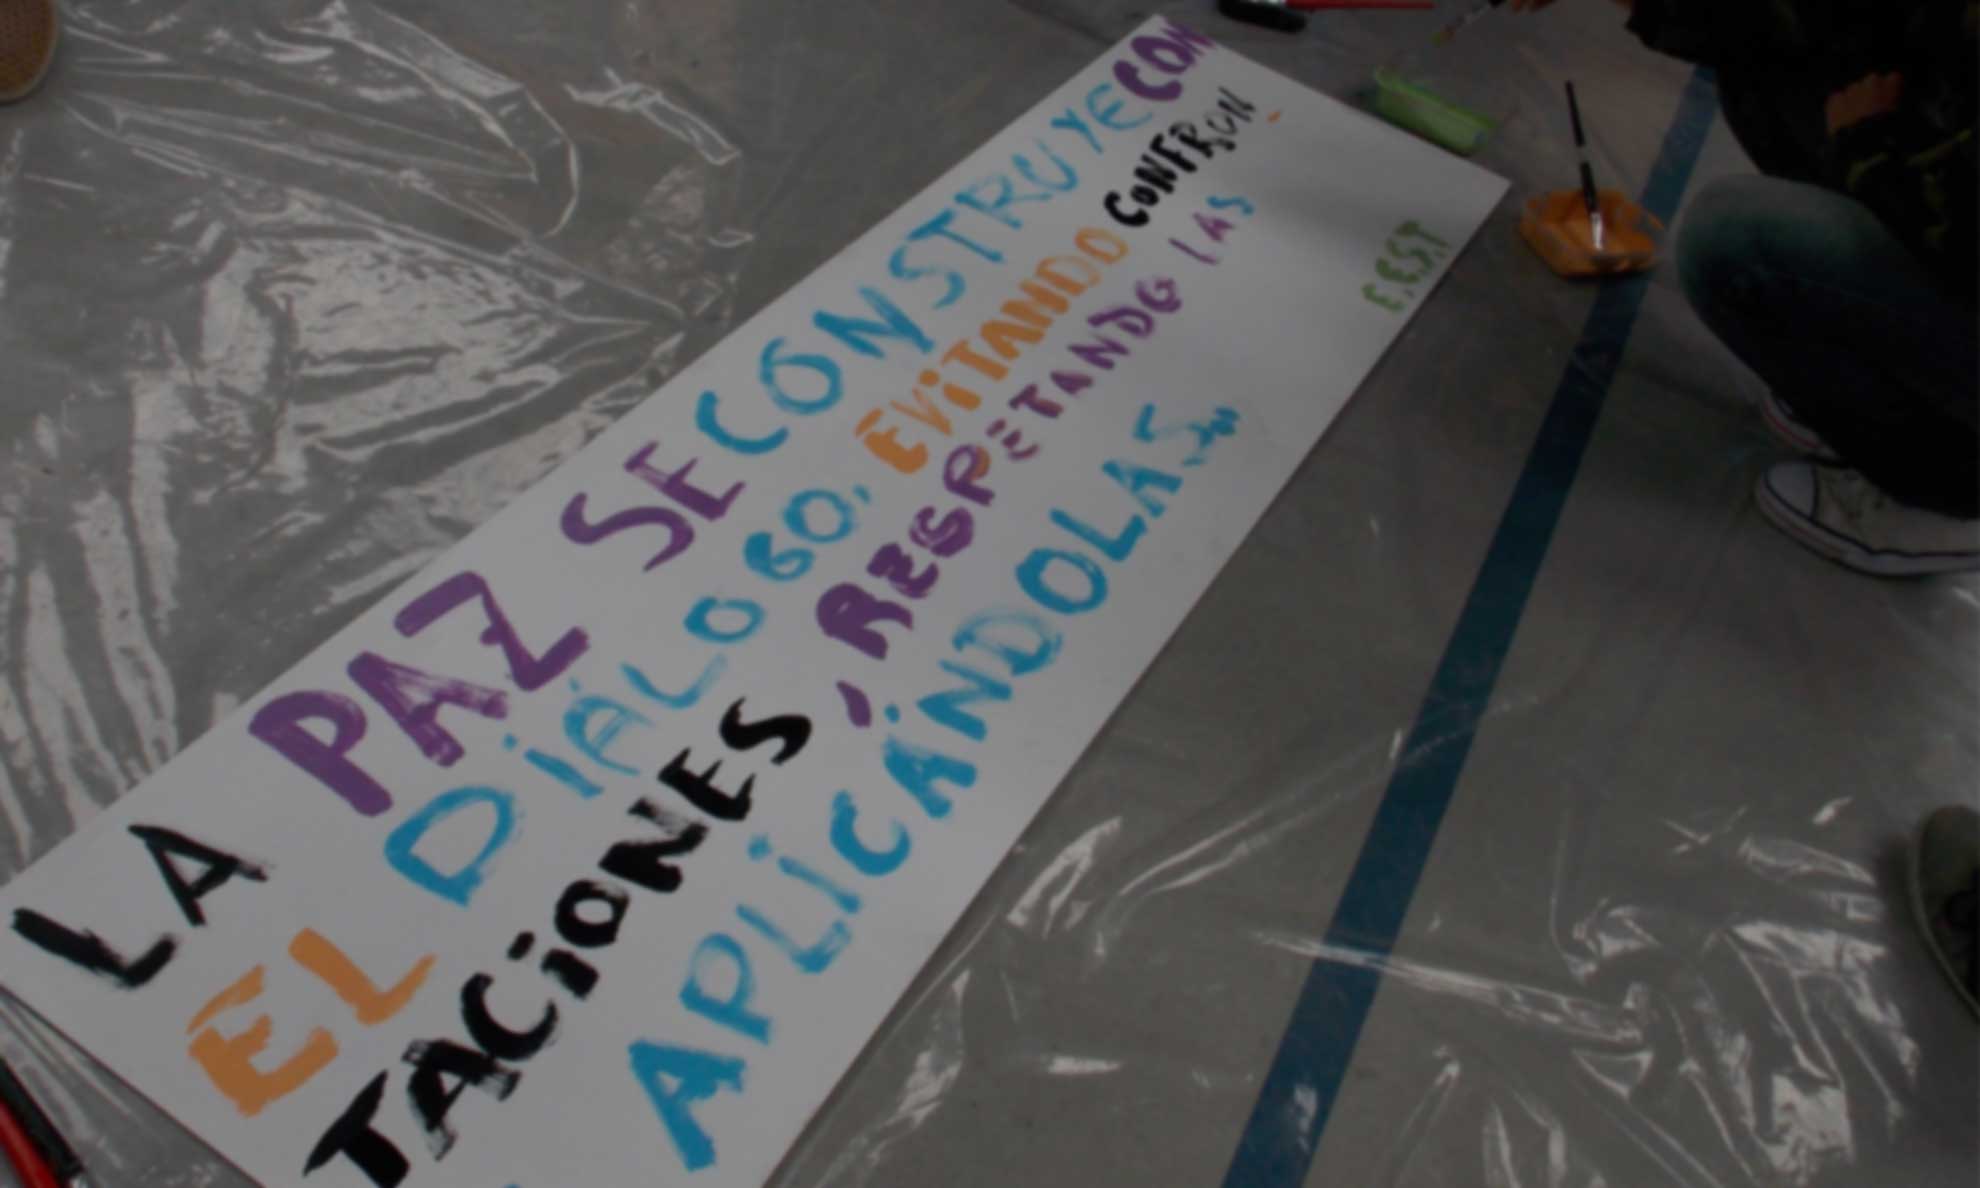 LA PAZ SE CONSTRUYE CON
EL DIÁLOGO, EVITANDO CONFRON-
TACIONES, RESPETANDO LAS
APLICÁNDOLAS